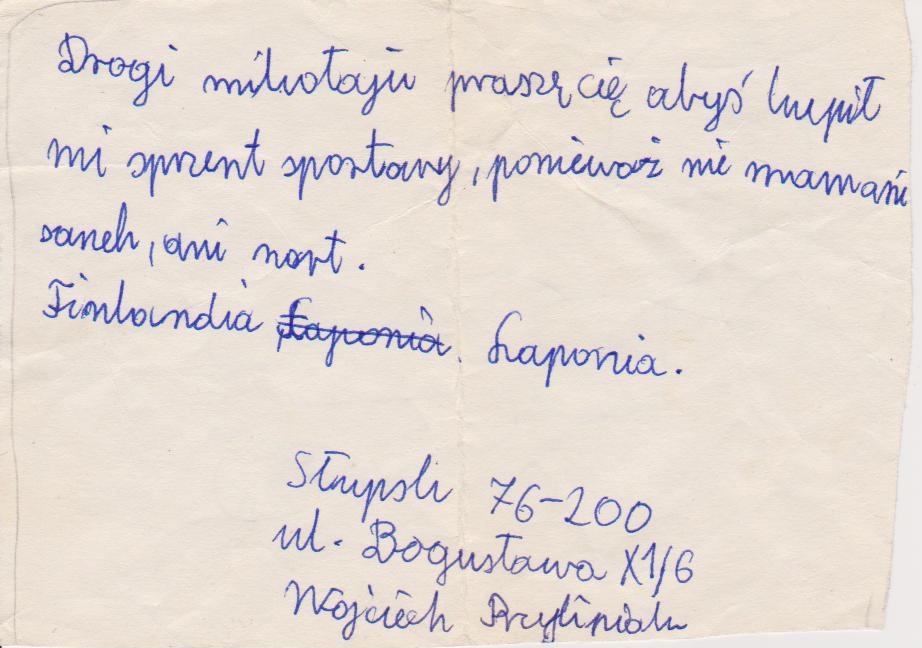 Drogi mikołaju praszę cię abyś kupił
mi sprzent sportawy, ponieważ nie mam ani
sanek, ani nart.
Finlandia Łaponia. Laponia.
Słupsk 76-200
ul. Bogusława X1/6
Wojciech